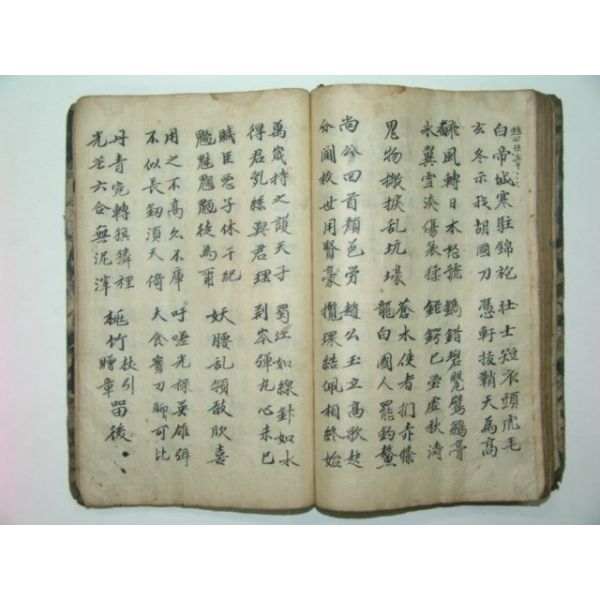 白帝城寒駐錦袍
玄冬示我胡國刀
壯士短衣頭虎毛
憑軒拔鞘天為高
翻風轉日木怒號
氷翼雪淡傷哀猱
鐫錯碧甖鸊鵜膏
鋩鍔已瑩虛秋濤
鬼物撇捩乱坑壕
蒼水使者捫赤絛
龍白國人罷釣鰲
尚公回首顏色勞
分閫救世用賢豪
趙公玉立高歌起
攬環結佩相終始
萬歲持之護天子
得君乱絲與君理
蜀江如線針如水
荊岑彈丸心未已
賊臣惡子休干紀
魑魅魍魎徒為爾
妖腰乱領敢欣喜
用之不高亦不庳
不似長釰須天倚
吁嗟光祿英雄弭
大食宝刀聊可比
丹青宛轉猉獜裡
光芒六合無泥滓
桃竹杖引
贈章留後